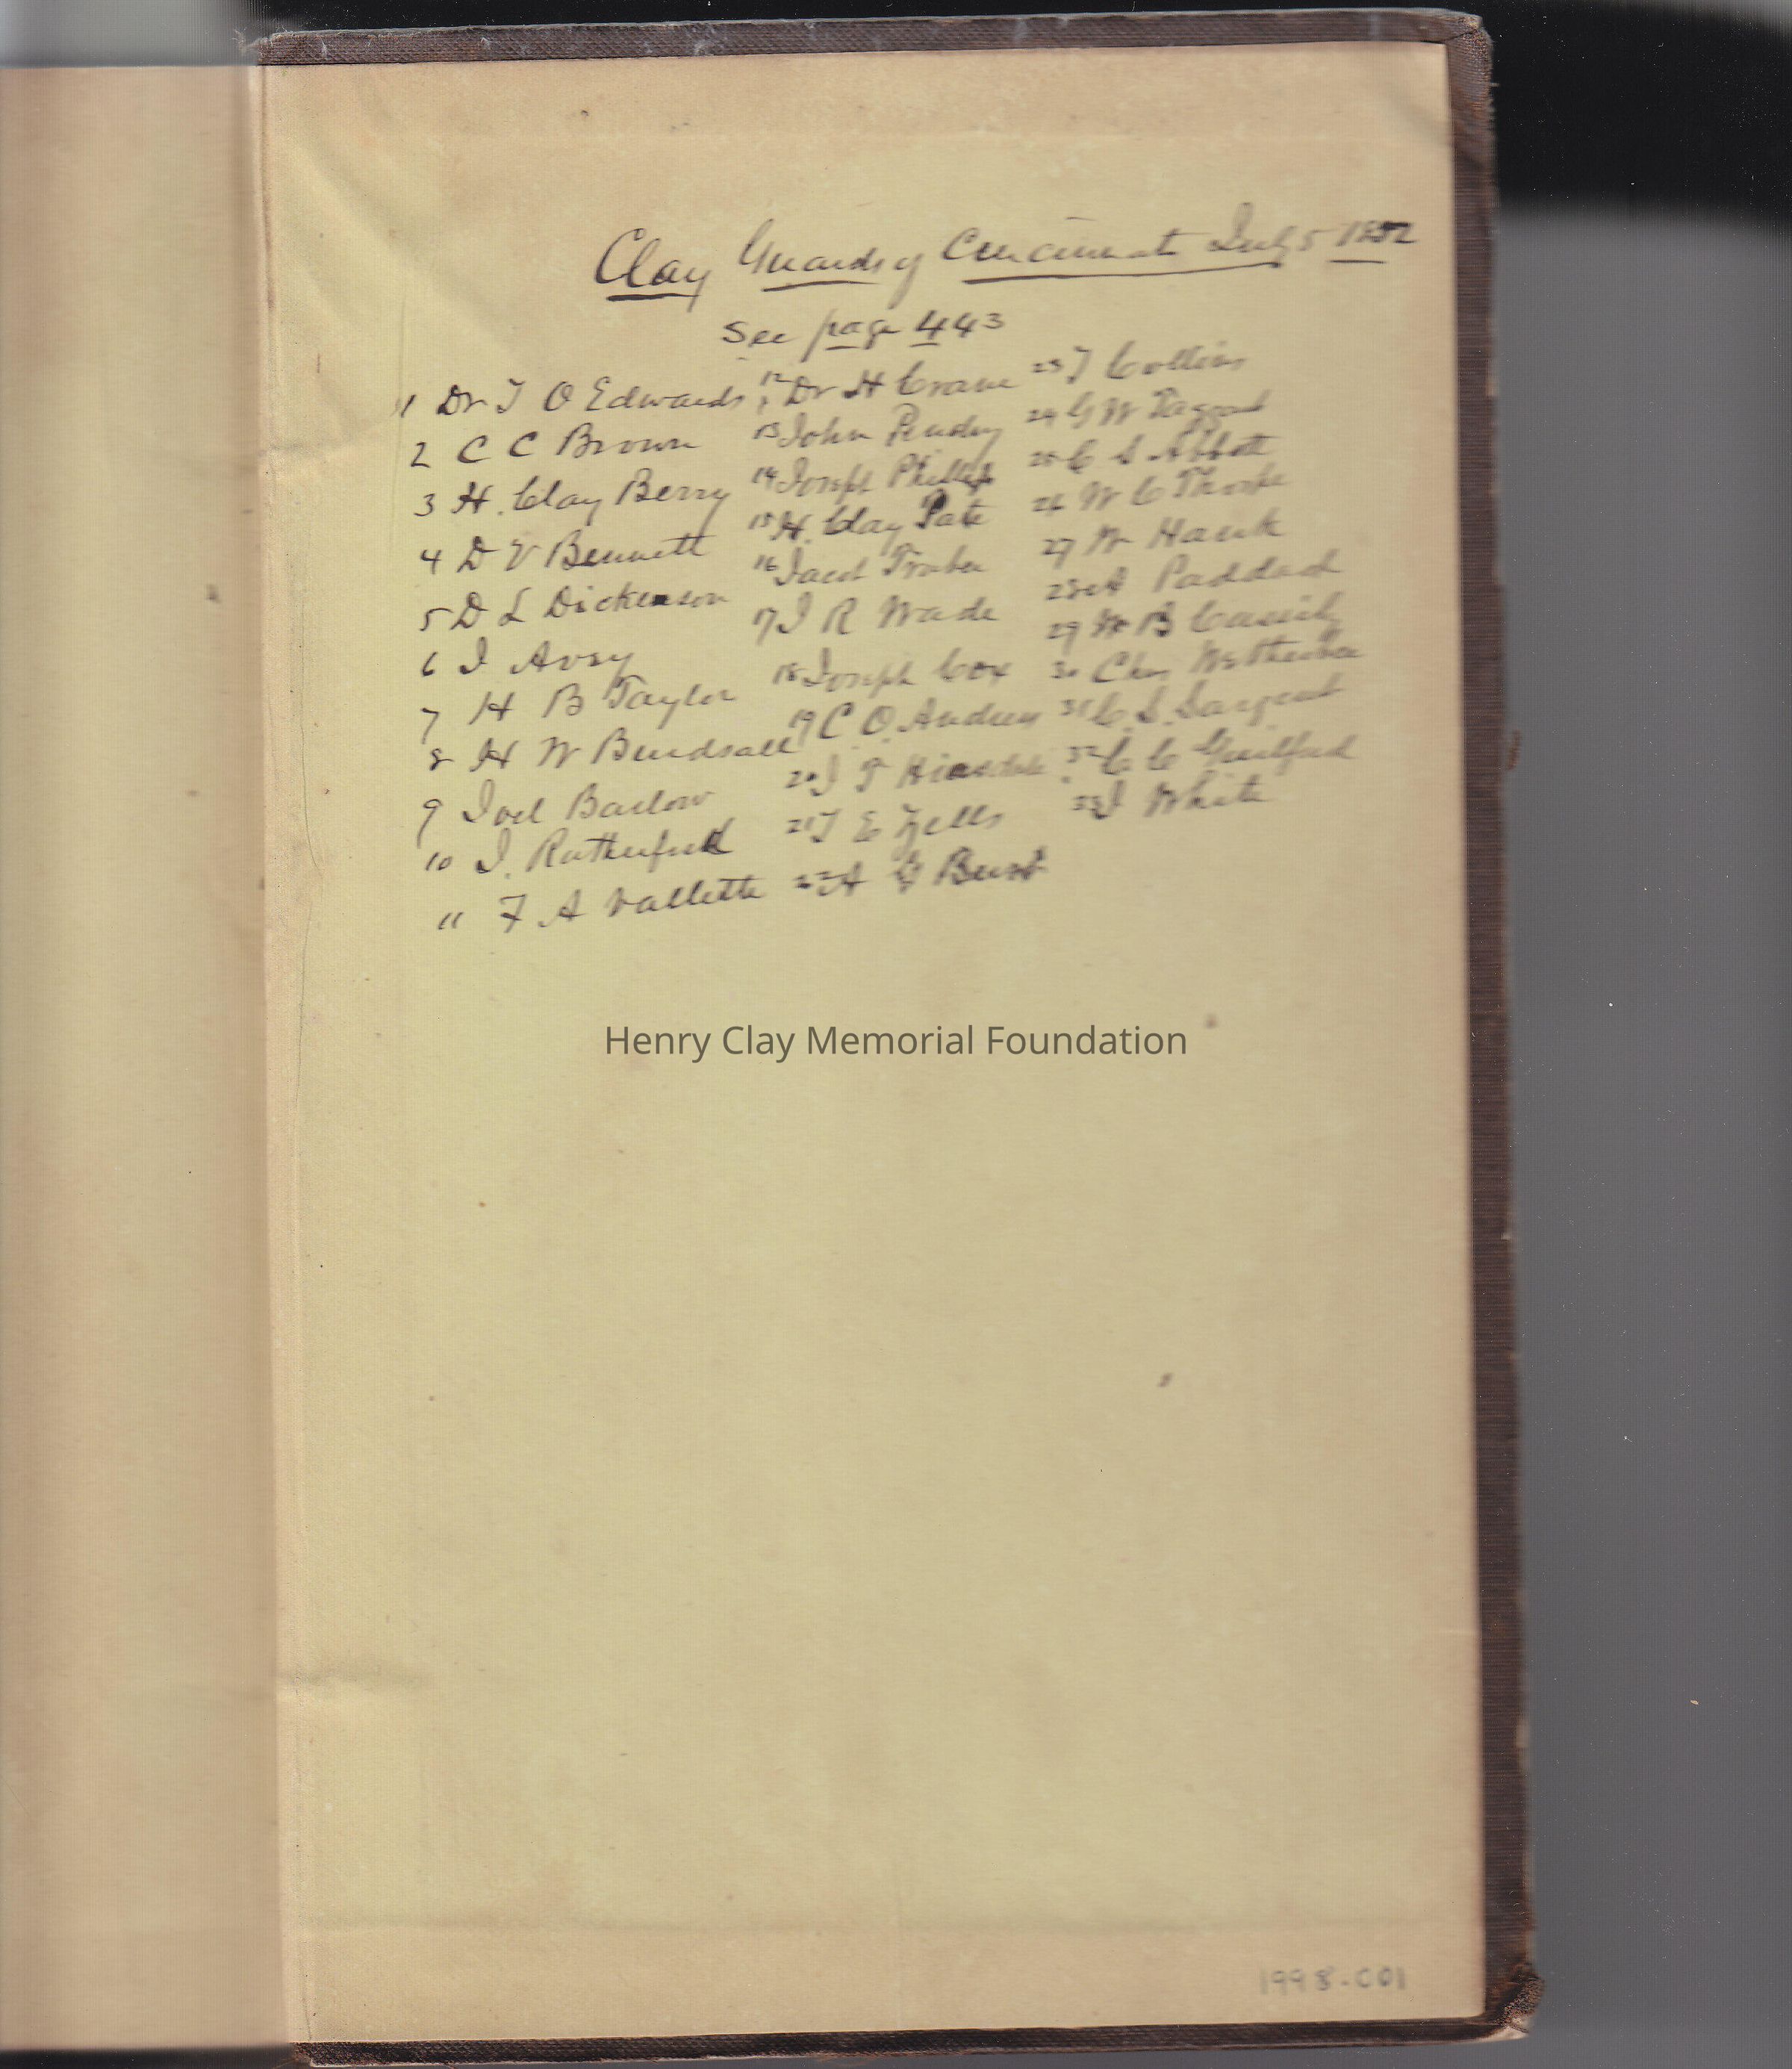 Clay Guards of Cincinnati July 5 1852
See page 443
1 Dr T O Edwards
2 C C Brown
3 H. Clay Berry
4 D V Bennett
5 D L Dickenson
6 I Avey
7 H B Taylor
8 H W Burdsall
9 Joel Barlow
10 J. Rutherford
11 F A Vallette
12 Dr H Crane
13 John Pendry
14 Joseph Phillips
15 H. Clay Pate
16 Jacob Traber
17 J R Wade
18 Joseph Cox
19 C. O. Andrews
20 J T Hinsdale
21 T E Zells
22 A G Burt
23 T Collins
24 G W Taggart
25 C S Abbott
26 W C Thorpe
27 W Hauk
28 A Paddack
29 W B Cassily
30 Chas Wetherbee
31 C. S. Sargent
32 C C Guilford
33 J White
Henry Clay Memorial Foundation
1998-C01